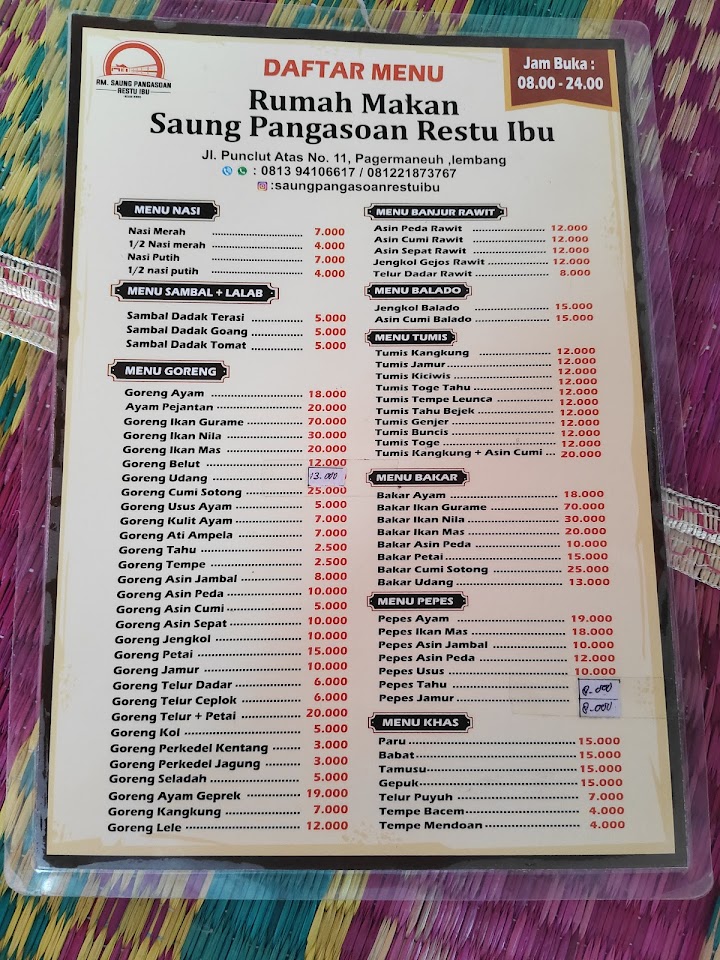 RM. SAUNG PANGASOAN
RESTU IBU
DAFTAR MENU
Jam Buka :
08.00 - 24.00
Rumah Makan
Saung Pangasoan Restu Ibu
Jl. Punclut Atas No. 11, Pagermaneuh ,lembang
: 0813 94106617 / 081221873767
:saungpangasoanrestuibu
MENU NASI
Nasi Merah 7.000
1/2 Nasi merah 4.000
Nasi Putih 7.000
1/2 nasi putih 4.000
MENU SAMBAL + LALAB
Sambal Dadak Terasi 5.000
Sambal Dadak Goang 5.000
Sambal Dadak Tomat 5.000
MENU GORENG
Goreng Ayam 18.000
Ayam Pejantan 20.000
Goreng Ikan Gurame 70.000
Goreng Ikan Nila 30.000
Goreng Ikan Mas 20.000
Goreng Belut 12.000
Goreng Udang 13.000
Goreng Cumi Sotong 25.000
Goreng Usus Ayam 5.000
Goreng Kulit Ayam 7.000
Goreng Ati Ampela 7.000
Goreng Tahu 2.500
Goreng Tempe 2.500
Goreng Asin Jambal 8.000
Goreng Asin Peda 10.000
Goreng Asin Cumi 5.000
Goreng Asin Sepat 10.000
Goreng Jengkol 10.000
Goreng Petai 15.000
Goreng Jamur 10.000
Goreng Telur Dadar 6.000
Goreng Telur Ceplok 6.000
Goreng Telur + Petai 20.000
Goreng Kol 5.000
Goreng Perkedel Kentang 3.000
Goreng Perkedel Jagung 3.000
Goreng Seladah 5.000
Goreng Ayam Geprek 19.000
Goreng Kangkung 7.000
Goreng Lele 12.000
MENU BANJUR RAWIT
Asin Peda Rawit 12.000
Asin Cumi Rawit 12.000
Asin Sepat Rawit 12.000
Jengkol Gejos Rawit 12.000
Telur Dadar Rawit 8.000
MENU BALADO
Jengkol Balado 15.000
Asin Cumi Balado 15.000
MENU TUMIS
Tumis Kangkung 12.000
Tumis Jamur 12.000
Tumis Kiciwis 12.000
Tumis Toge Tahu 12.000
Tumis Tempe Leunca 12.000
Tumis Tahu Bejek 12.000
Tumis Genjer 12.000
Tumis Buncis 12.000
Tumis Toge 12.000
Tumis Kangkung + Asin Cumi 20.000
MENU BAKAR
Bakar Ayam 18.000
Bakar Ikan Gurame 70.000
Bakar Ikan Nila 30.000
Bakar Ikan Mas 20.000
Bakar Asin Peda 10.000
Bakar Petai 15.000
Bakar Cumi Sotong 25.000
Bakar Udang 13.000
MENU PEPES
Pepes Ayam 19.000
Pepes Ikan Mas 18.000
Pepes Asin Jambal 10.000
Pepes Asin Peda 12.000
Pepes Usus 10.000
Pepes Tahu 8.000
Pepes Jamur 8.000
MENU KHAS
Paru 15.000
Babat 15.000
Tamusu 15.000
Gepuk 15.000
Telur Puyuh 7.000
Tempe Bacem 4.000
Tempe Mendoan 4.000